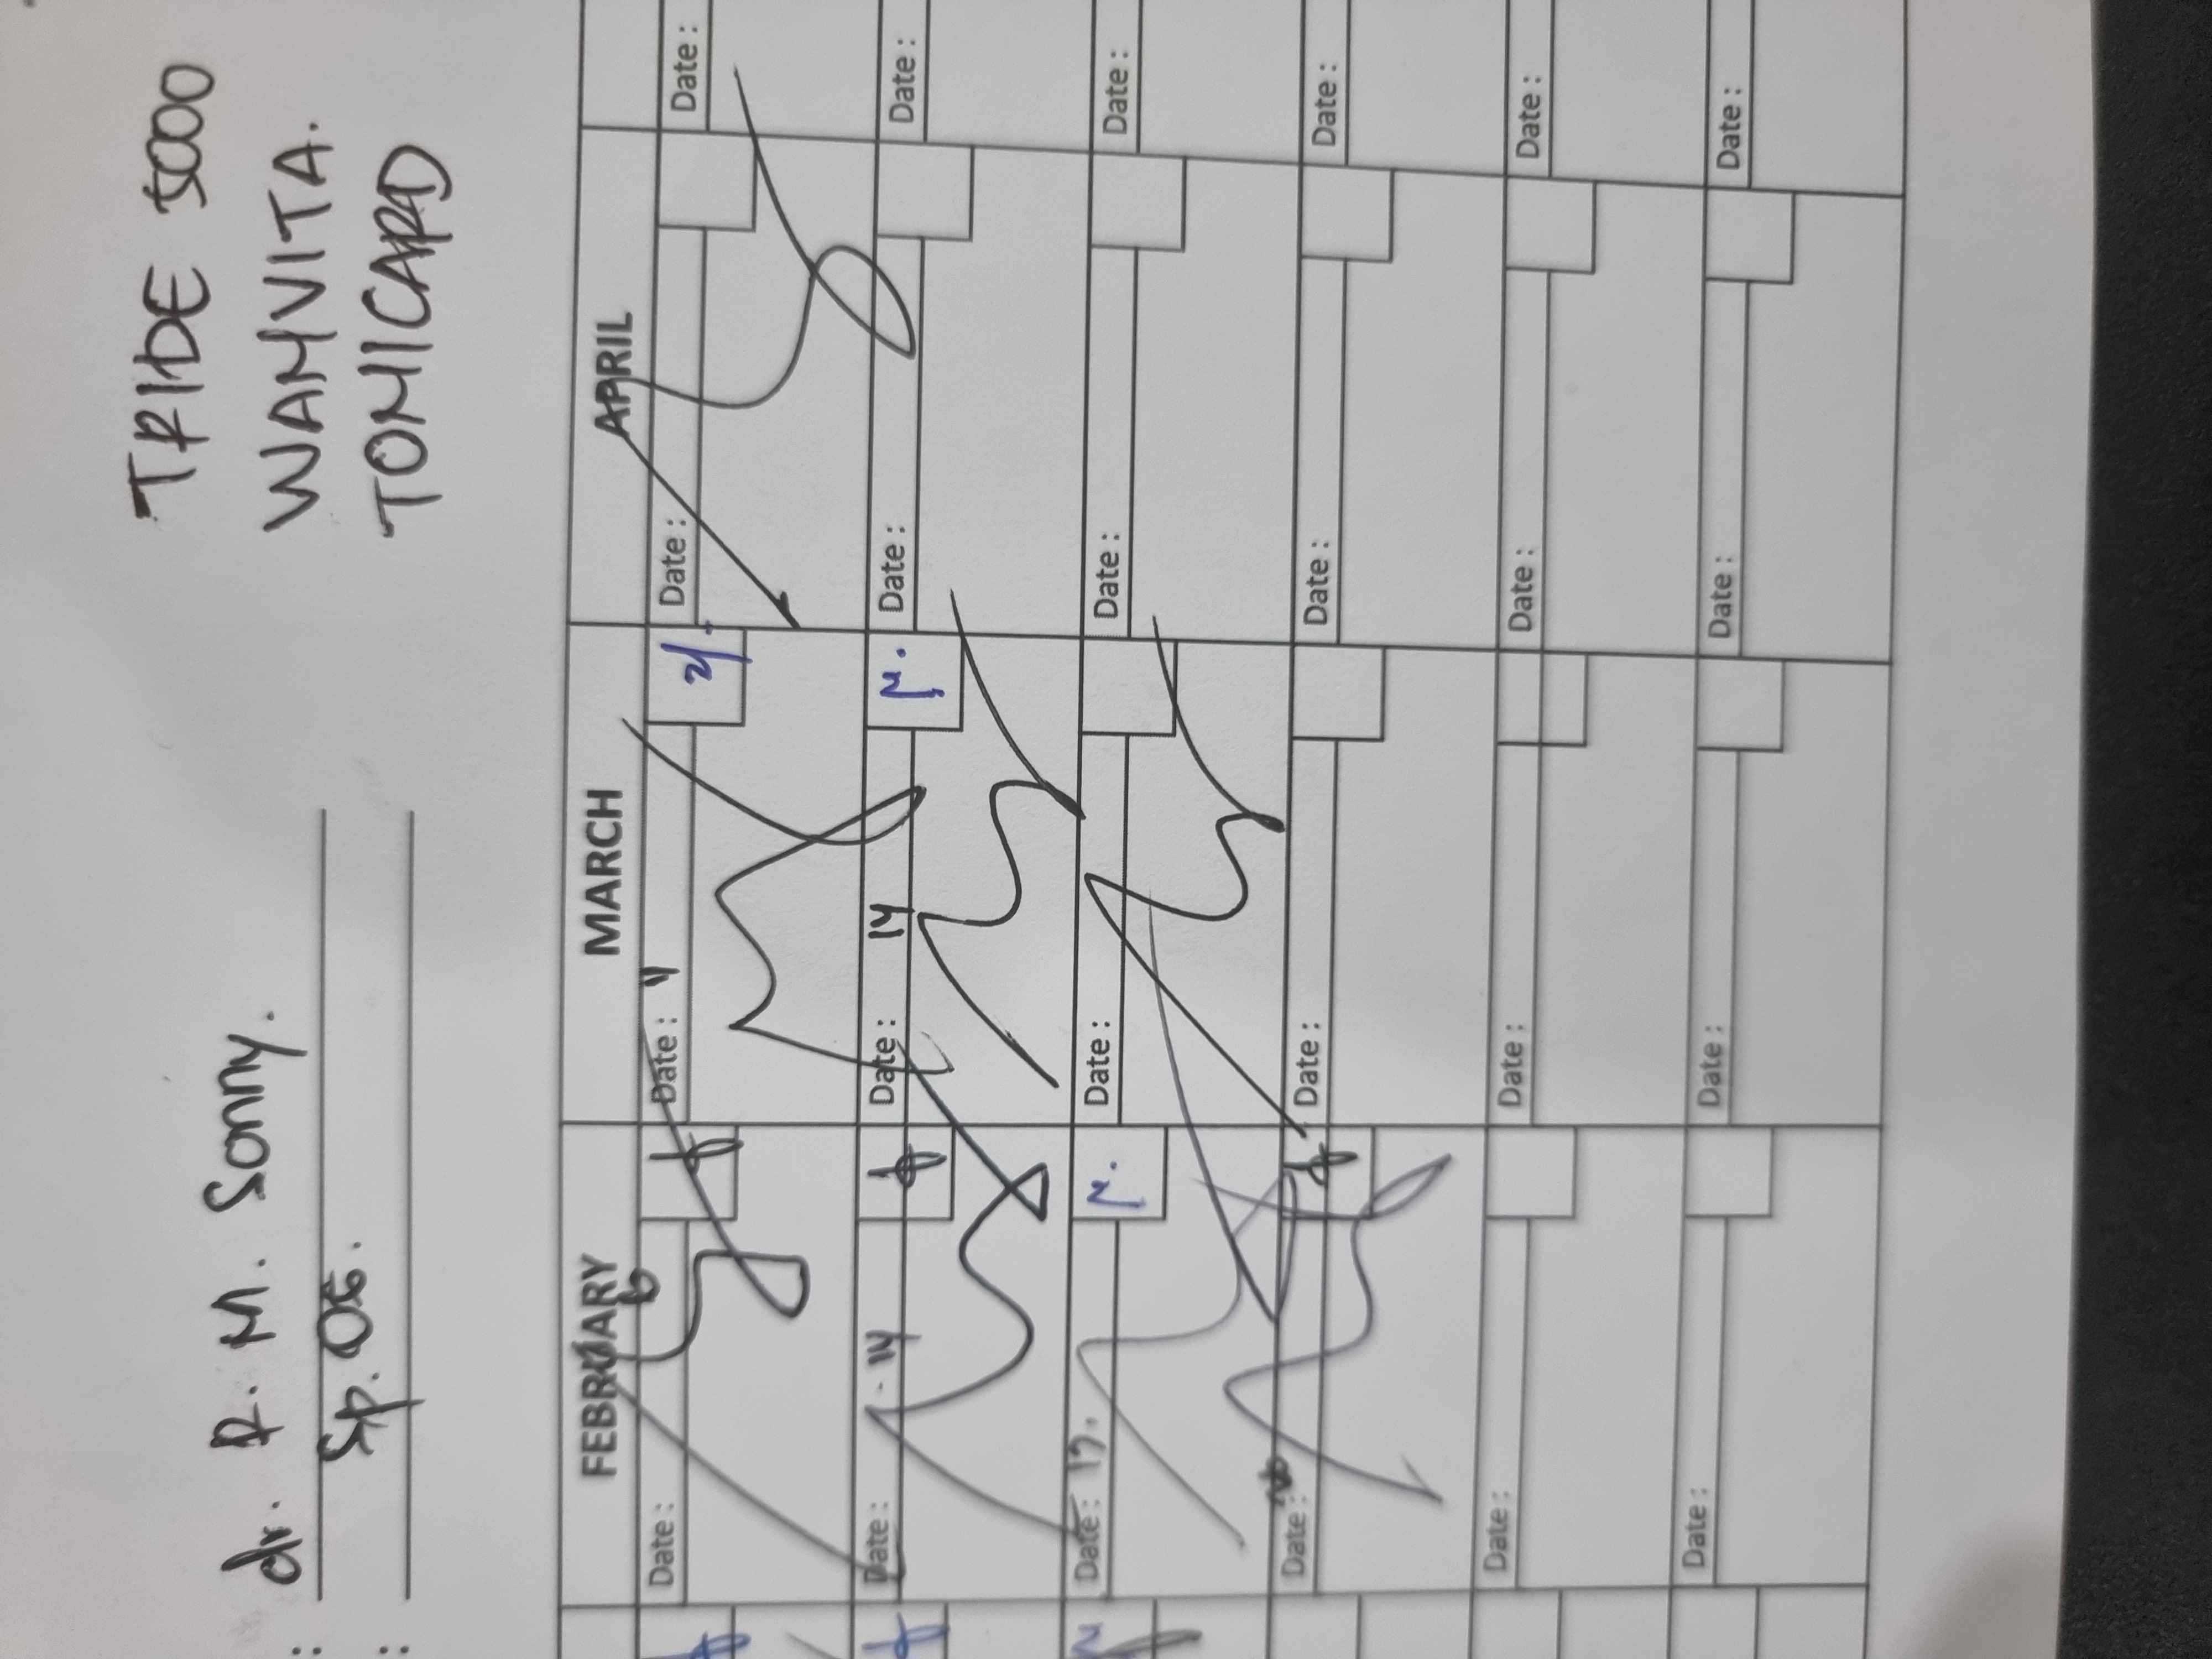 : dr. R. M. Sonny.
: Sp. OG.
TRIDE 5000
WAMVITA.
TONICARD
FEBRUARY MARCH APRIL
Date: 6 Date: 11 Date: Date:
Date: 14 Date: 14 Date: Date:
Date: 17. Date: Date: Date:
Date: Date: Date: Date:
Date: Date: Date: Date:
Date: Date: Date: Date: